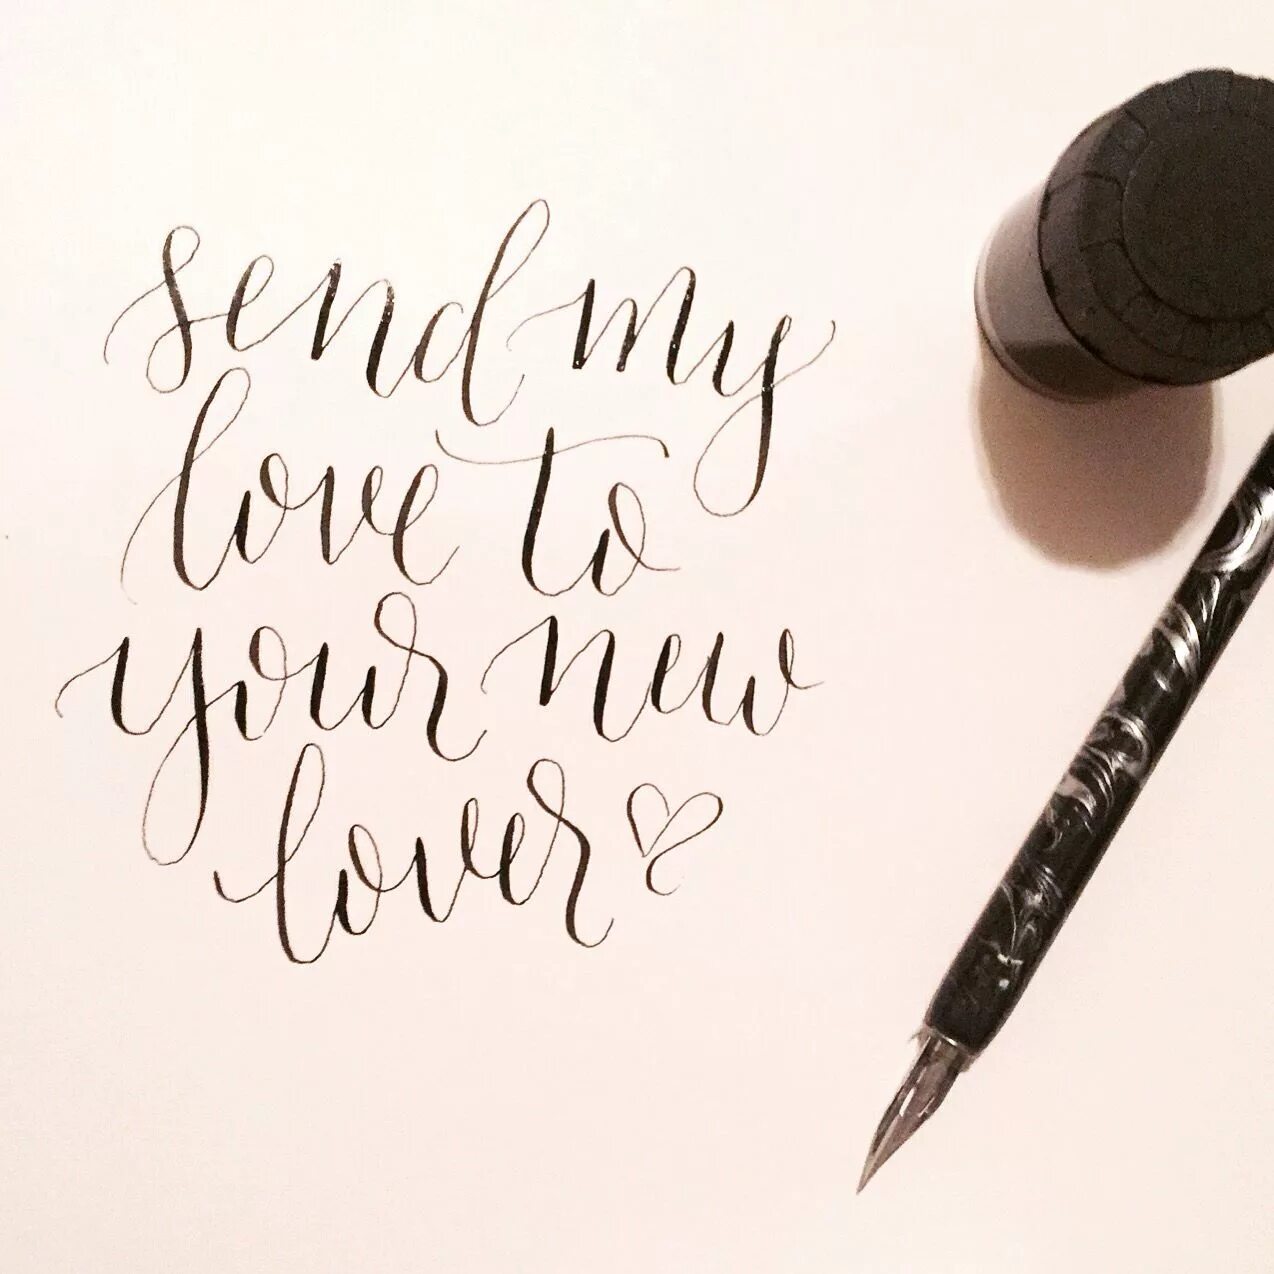 send my
love to
your new
lover